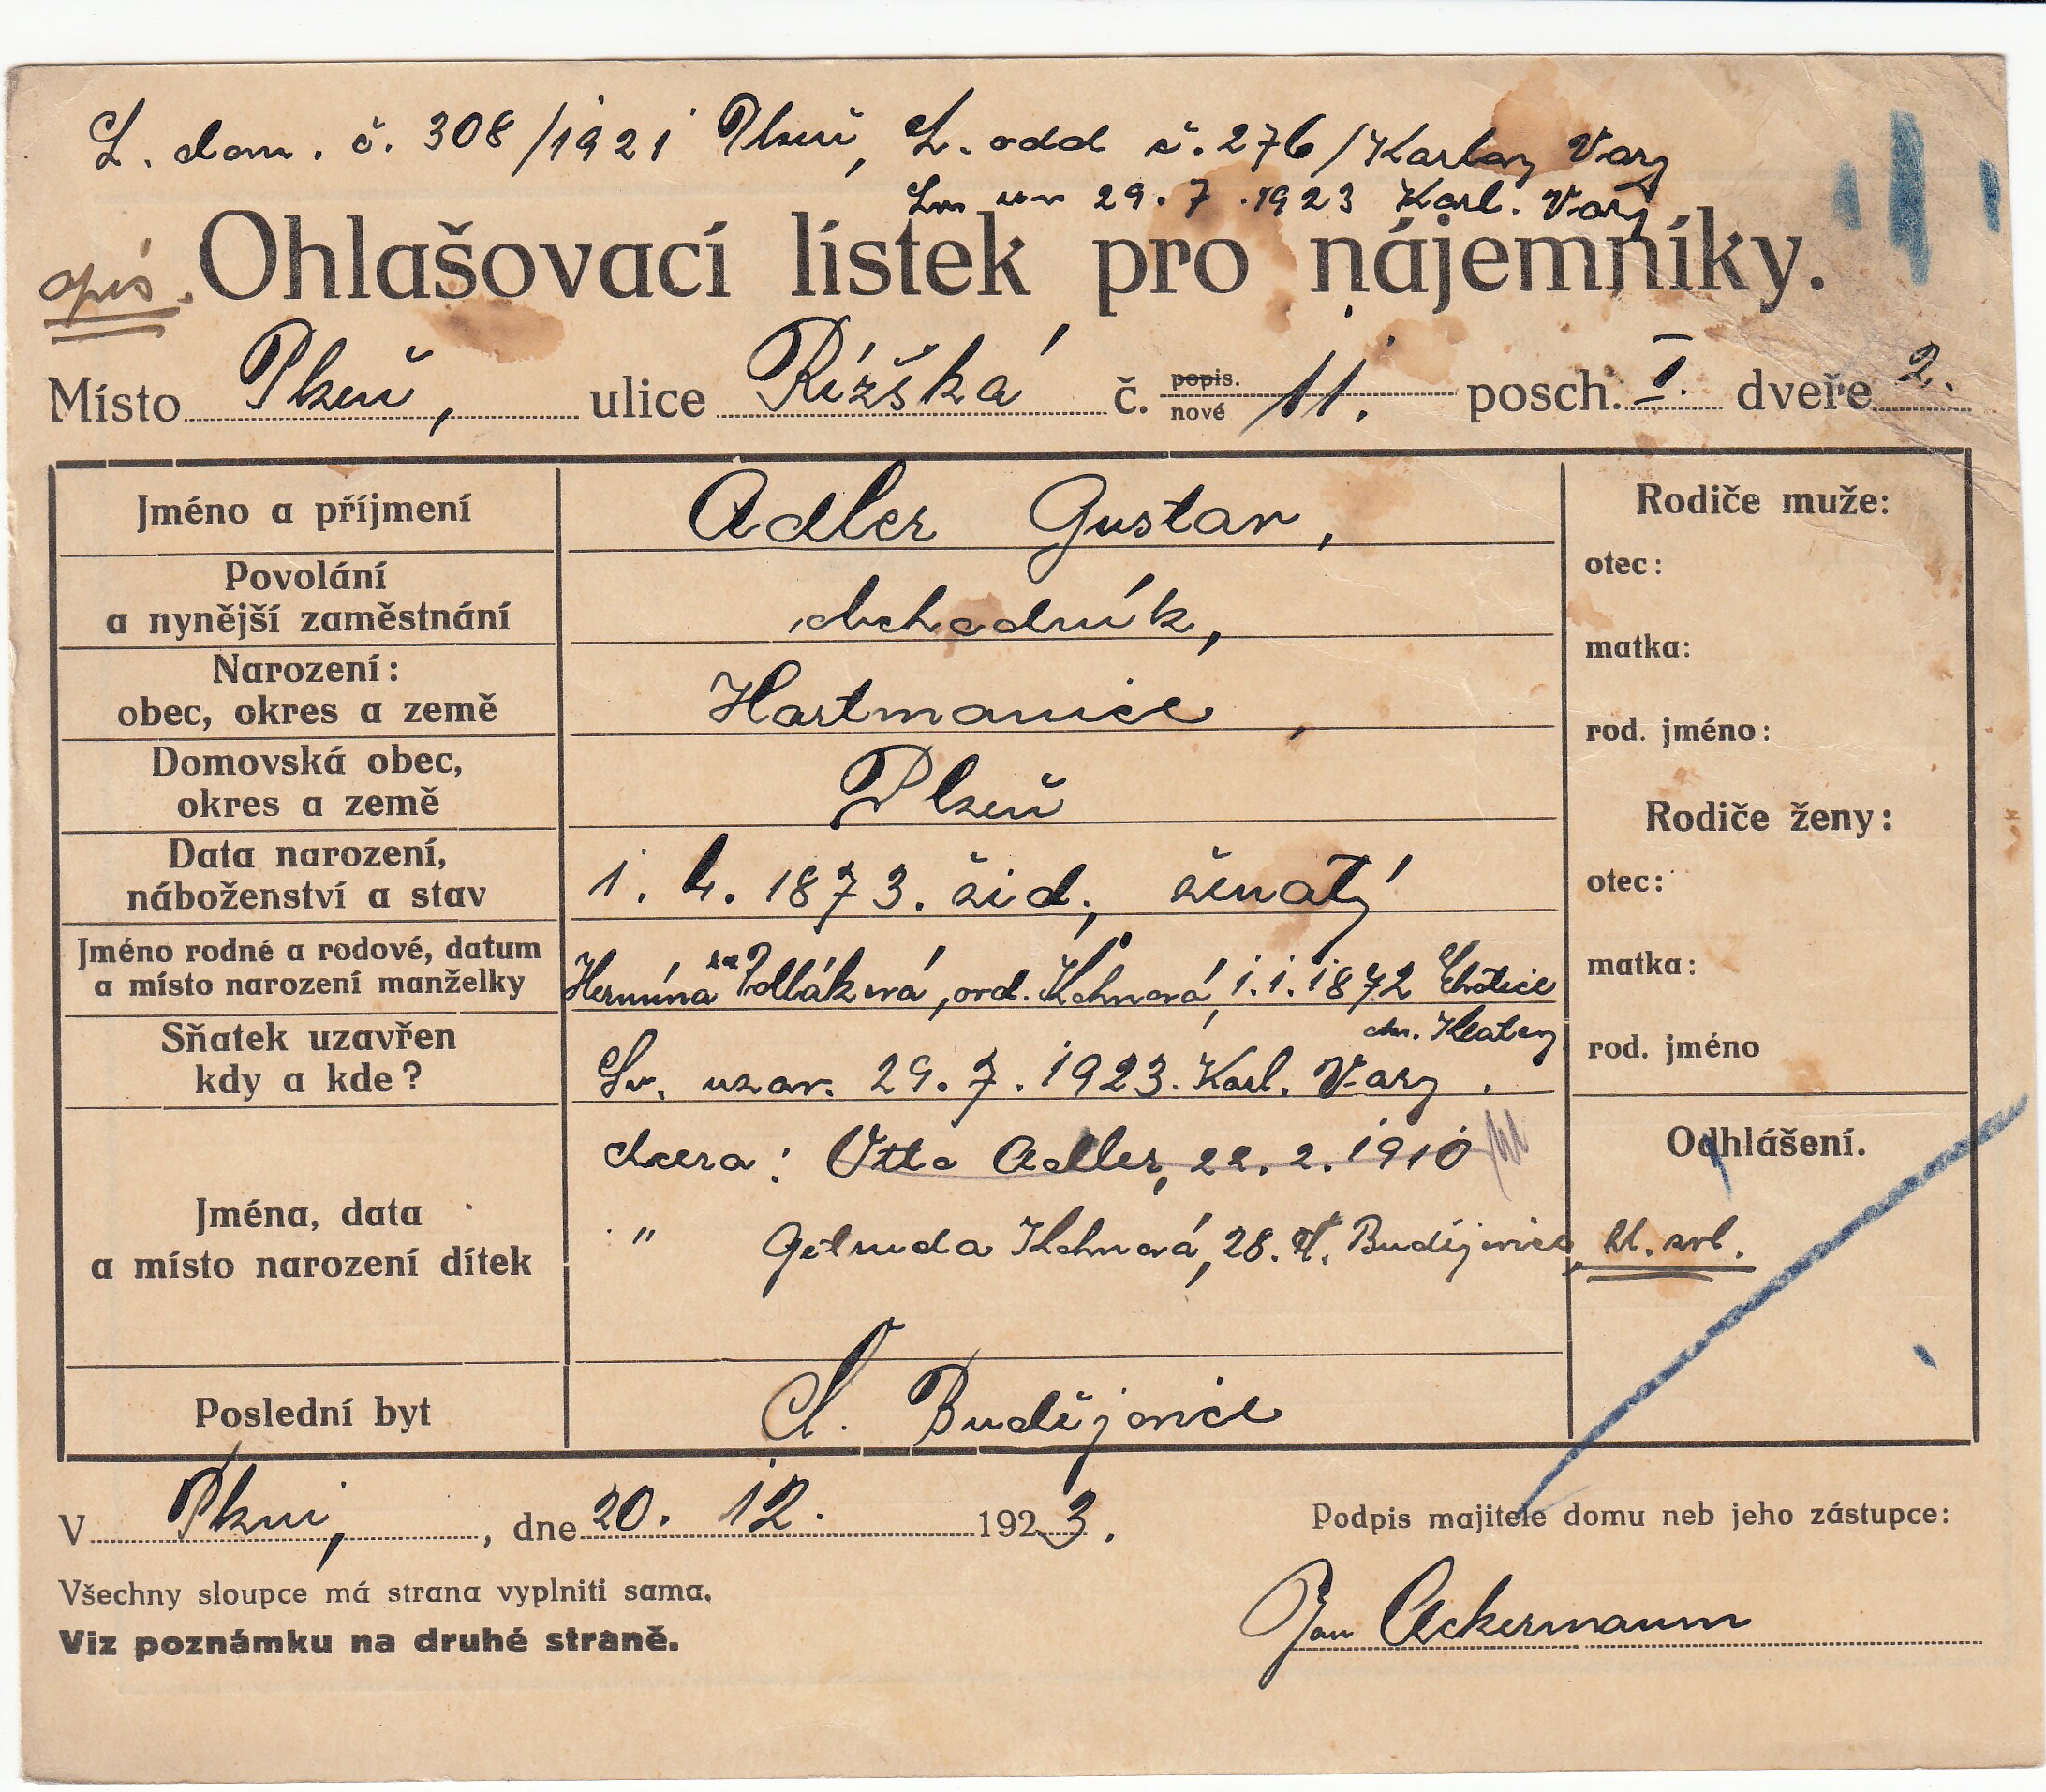 L. dom. č. 308/1921 Plzeň, L. odd č. 276/Karlovy Vary
29.7.1923 Karl. Vary
opis.
Ohlašovací lístek pro nájemníky.
Místo Plzeň, ulice Rižšká č. popis. nové 11. posch. I. dveře 2.
Jméno a příjmení Adler Gustav,
Povolání a nynější zaměstnání obchodník,
Narození: obec, okres a země Hartmanice,
Domovská obec, okres a země Plzeň
Data narození, náboženství a stav 1. 4. 1873. žid., ženatý
Jméno rodné a rodové, datum a místo narození manželky Hermína, Kohnová, 1.1.1872
okr. Klatovy
Sňatek uzavřen kdy a kde? Sv. uzav. 29. 7. 1923. Karl. Vary.
Jména, data a místo narození dítek dcera: Otto Adler, 22. 2. 1910
" Getruda Kohnová, 28. Budějovice,
Poslední byt Č. Budějovice
Rodiče muže:
otec:
matka:
rod. jméno:
Rodiče ženy:
otec:
matka:
rod. jméno
Odhlášení.
V Plzni, dne 20. 12. 1923.
Podpis majitele domu neb jeho zástupce:
Všechny sloupce má strana vyplniti sama.
Viz poznámku na druhé straně.
Jan Ackermann